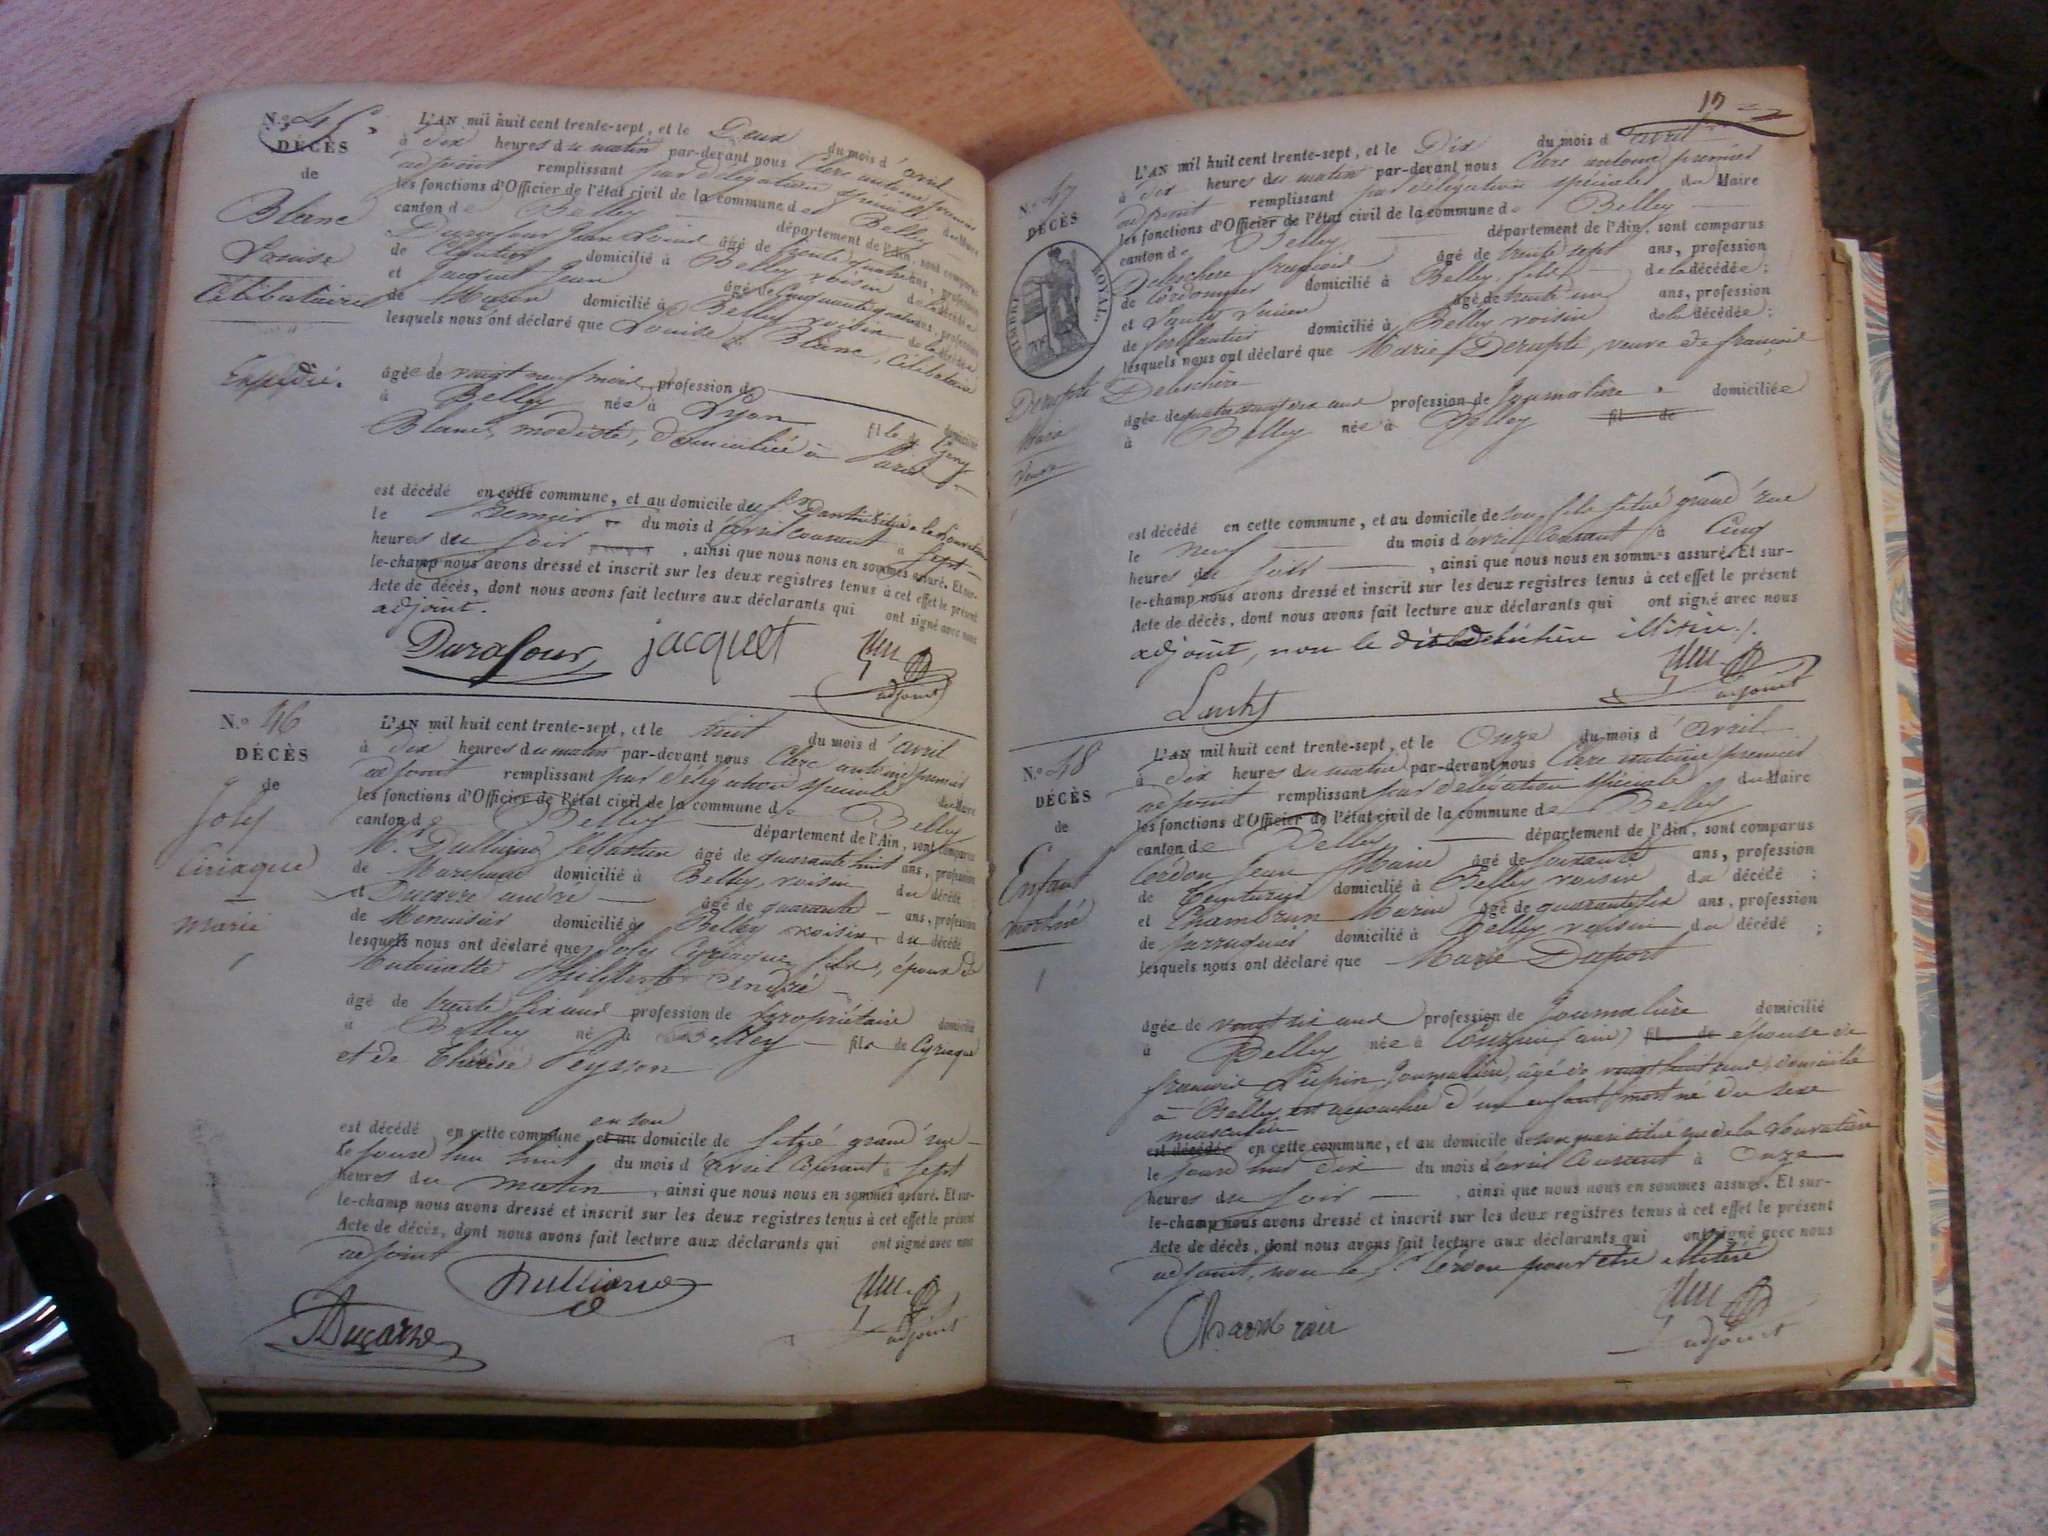 N.º 45.
DÉCÈS
de
Blanc
Louise
Célibataire
Expédié.
L'AN mil huit cent trente-sept, et le Deux du mois d'avril
à dix heures du matin par-devant nous Clerc antoine premier
adjoint remplissant par délégation spéciale du Maire
les fonctions d'Officier de l'état civil de la commune de Belley
canton de Belley département de l'Ain, sont comparus
Durafour Jean Louis âgé de trente quatre ans, profession
de domicilié à Belley voisin de la décédée
et Jacquet Jean âgé de Cinquante quatre ans, profession
de Maçon domicilié à Belley voisin de la décédée
lesquels nous ont déclaré que Louise Blanc, Célibataire
âgée de vingt neuf mois, profession de
à Belley née à Lyon fille de
Blanc, modiste, domiciliée à Paris
est décédé en cette commune, et au domicile du
le premier du mois d'avril courant à Sept
heures du soir, ainsi que nous nous en sommes assuré. Et sur-
le-champ nous avons dressé et inscrit sur les deux registres tenus à cet effet le présent
Acte de décès, dont nous avons fait lecture aux déclarants qui ont signé avec nous
adjoint.
Durafour jacquet
adjoint
N.º 46
DÉCÈS
de
Joly
Ciriaque
marié
L'AN mil huit cent trente-sept, et le huit du mois d'avril
à dix heures du matin par-devant nous Clerc antoine premier
adjoint remplissant par délégation spéciale du Maire
les fonctions d'Officier de l'état civil de la commune de Belley
canton de Belley département de l'Ain, sont comparus
Mr. Sébastien âgé de quarante huit ans, profession
de Marchand domicilié à Belley, voisin du décédé
et Ducarre andré âgé de quarante ans, profession
de Menuisier domicilié à Belley voisin du décédé
lesquels nous ont déclaré que Joly Cyriaque fils, époux de
Antoinette andré
âgé de trente six ans profession de propriétaire domicilié
à Belley né à Belley fils de Cyriaque
et de Thérèse Peysson
en son
est décédé en cette commune, et au domicile de situé grand'rue
le jourd'hui huit du mois d'avril Courant à Sept
heures du matin, ainsi que nous nous en sommes assuré. Et sur-
le-champ nous avons dressé et inscrit sur les deux registres tenus à cet effet le présent
Acte de décès, dont nous avons fait lecture aux déclarants qui ont signé avec nous
adjoint
Ducarre
adjoint
N.º 47
DÉCÈS
TIMBRE ROYAL.
Derupté
Marie
Veuve
L'AN mil huit cent trente-sept, et le Dix du mois d'avril
à dix heures du matin par-devant nous Clerc antoine premier
adjoint remplissant par délégation spéciale du Maire
les fonctions d'Officier de l'état civil de la commune de Belley
canton de Belley département de l'Ain, sont comparus
françois âgé de trente sept ans, profession
de Cordonnier domicilié à Belley, fils de la décédée;
et âgé de trente un ans, profession
de ferblantier domicilié à Belley voisin de la décédée;
lesquels nous ont déclaré que Marie Derupté, veuve de françois
âgée de quatre vingt six ans profession de Journalière domiciliée
à Belley née à Belley fil de
est décédé en cette commune, et au domicile de son fils situé grand'rue
le neuf du mois d'avril Courant à Cinq
heures du soir, ainsi que nous nous en sommes assuré. Et sur-
le-champ nous avons dressé et inscrit sur les deux registres tenus à cet effet le présent
Acte de décès, dont nous avons fait lecture aux déclarants qui ont signé avec nous
adjoint, non le dit
adjoint
N.º 48
DÉCÈS
de
Enfant
mort né
L'AN mil huit cent trente-sept, et le Onze du mois d'avril
à dix heures du matin par-devant nous Clerc antoine premier
adjoint remplissant par délégation spéciale du Maire
les fonctions d'Officier de l'état civil de la commune de Belley
canton de Belley département de l'Ain, sont comparus
Cerdon Jean Marie âgé de soixante ans, profession
de Teinturier domicilié à Belley voisin du décédé;
et Chambrun Marin âgé de quarante six ans, profession
de perruquier domicilié à Belley voisin du décédé;
lesquels nous ont déclaré que Marie Duport
âgée de vingt six ans profession de Journalière domicilié
à Belley née à Conzieu (ain) fil de épouse de
françois Pupin Journalier, âgé de vingt huit ans, domicilié
à Belley est accouchée d'un enfant mort né du sexe
masculin
est décédé en cette commune, et au domicile de son mari situé rue de la
le jourd'hui dix du mois d'avril Courant à Onze
heures du soir, ainsi que nous nous en sommes assuré. Et sur-
le-champ nous avons dressé et inscrit sur les deux registres tenus à cet effet le présent
Acte de décès, dont nous avons fait lecture aux déclarants qui ont signé avec nous
adjoint, non le Sr. Cerdon pour être illitéré
adjoint